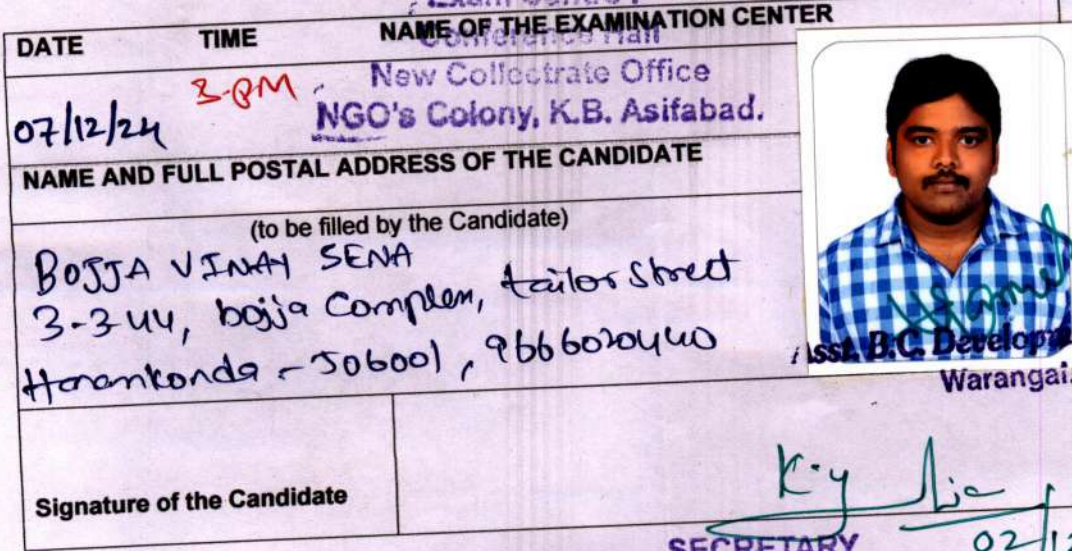 Conference Hall
DATE TIME NAME OF THE EXAMINATION CENTER
New Collectrate Office
07/12/24 3-PM
NGO's Colony, K.B. Asifabad.
NAME AND FULL POSTAL ADDRESS OF THE CANDIDATE
(to be filled by the Candidate)
BOJJA VINAY SENA
3-3-44, bojja Complex, tailor Street
Hanamkonda - 506001, 9666020440
Asst. B.C. Develop
Warangal.
Signature of the Candidate
SECRETARY
02/12